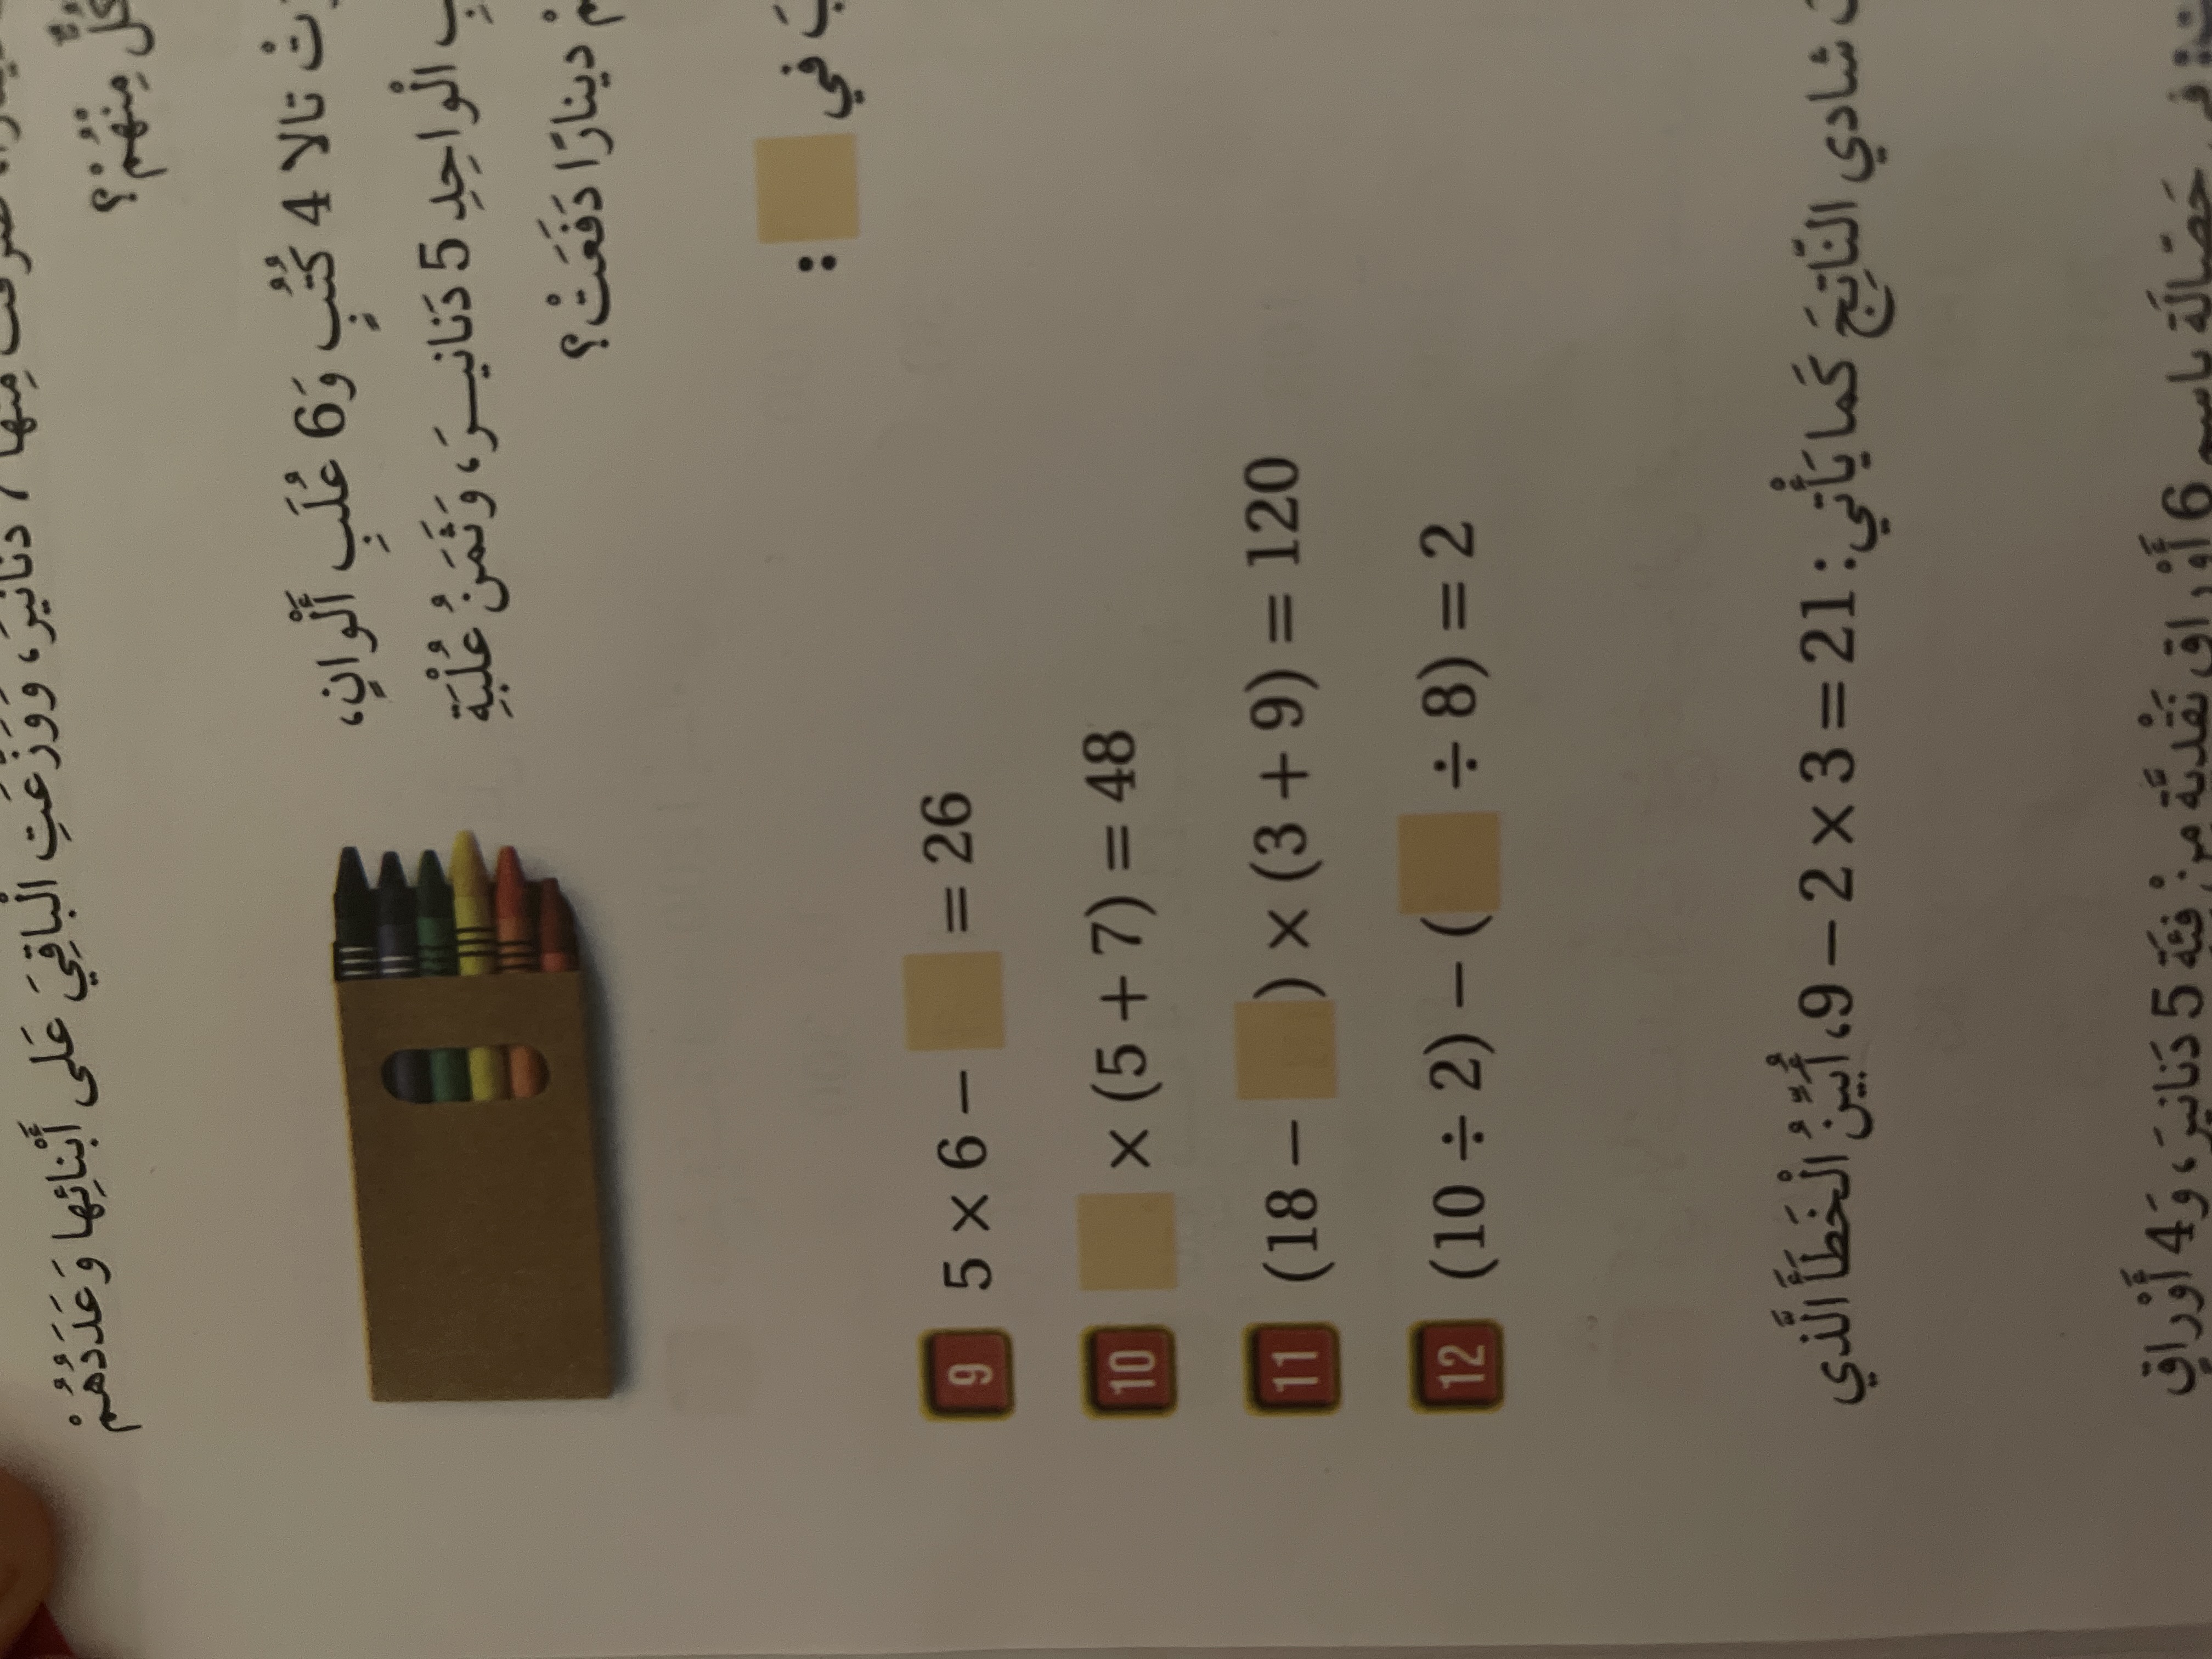 دَنانيرَ، وَوَزَّعَتِ الْباقِيَ عَلى أَبْنائِها وَعَدَدُهُمْ
كُلٌّ مِنْهُمْ؟
تالا 4 كُتُبٍ وَ6 عُلَبِ أَلْوانٍ،
الْواحِدِ 5 دَنانيـرَ، وَثَمَنُ عُلْبَةِ
دينارًا دَفَعَتْ؟
في :
9 5 × 6 – = 26
10 × (5 + 7) = 48
11 (18 – ) × (3 + 9) = 120
12 (10 ÷ 2) – ( ÷ 8) = 2
شادي النّاتِجَ كَما يَأْتي: 21 = 3 × 2 – 9، أُبَيِّنُ الْخَطَأَ الَّذي
حَصّالَةِ باسِمٍ 6 أَوْراقٍ نَقْدِيَّةٍ مِنْ فِئَةِ 5 دَنانيرَ، وَ4 أَوْراقٍ